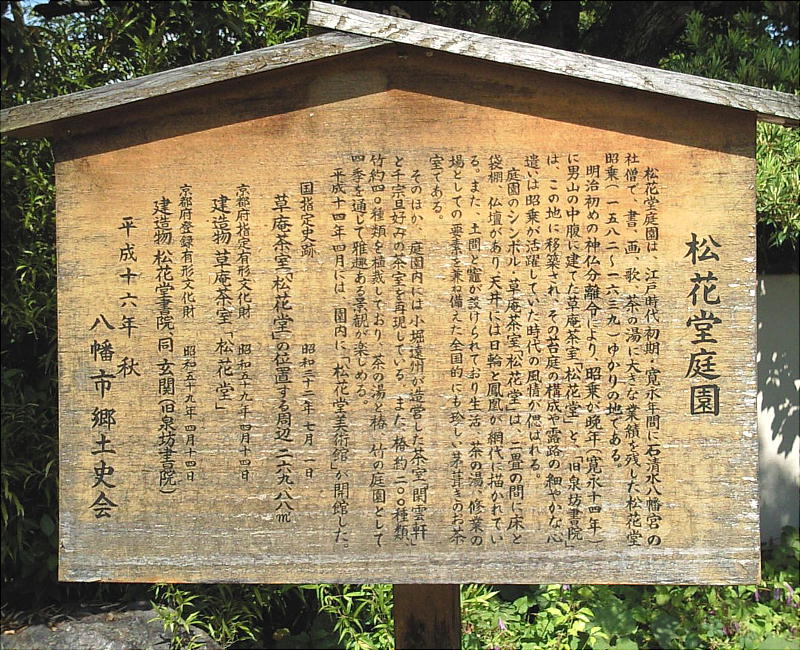 松花堂庭園
松花堂庭園は、江戸時代初期・寛永年間に石清水八幡宮の
社僧で、書、画、歌、茶の湯に大きな業績を残した松花堂
昭乗(一五八二~一六三九)ゆかりの地である。
明治初めの神仏分離令により、昭乗が晩年(寛永十四年)
に男山の中腹に建てた草庵茶室「松花堂」と、「旧泉坊書院」
は、この地に移築され、その苔庭の構成や露路の細やかな心
遣いは昭乗が活躍していた時代の風情が偲ばれる。
庭園のシンボル・草庵茶室「松花堂」は、二畳の間に床と
袋棚、仏壇があり、天井には日輪と鳳凰が網代に描かれてい
る。また、土間と竈が設けられており生活、茶の湯、修業の
場としての要素を兼ね備えた全国的にも珍しい茅葺きのお茶
室である。
そのほか、庭園内には小堀遠州が造営した茶室「閑雲軒」
と千宗旦好みの茶室を再現している。また、椿約二〇〇種類、
竹約四〇種類を植栽しており、茶の湯と椿、竹の庭園として
四季を通じて雅趣ある景観が楽しめる。
平成十四年四月には、園内に「松花堂美術館」が開館した。
国指定史跡 昭和三十二年 七月 一日
草庵茶室「松花堂」の位置する周辺 二六九・八八㎡
京都府指定有形文化財 昭和五十九年 四月十四日
建造物 草庵茶室「松花堂」
京都府登録有形文化財 昭和五十九年 四月十四日
建造物 松花堂書院、同 玄関(旧泉坊書院)
平成十六年 秋
八幡市郷土史会